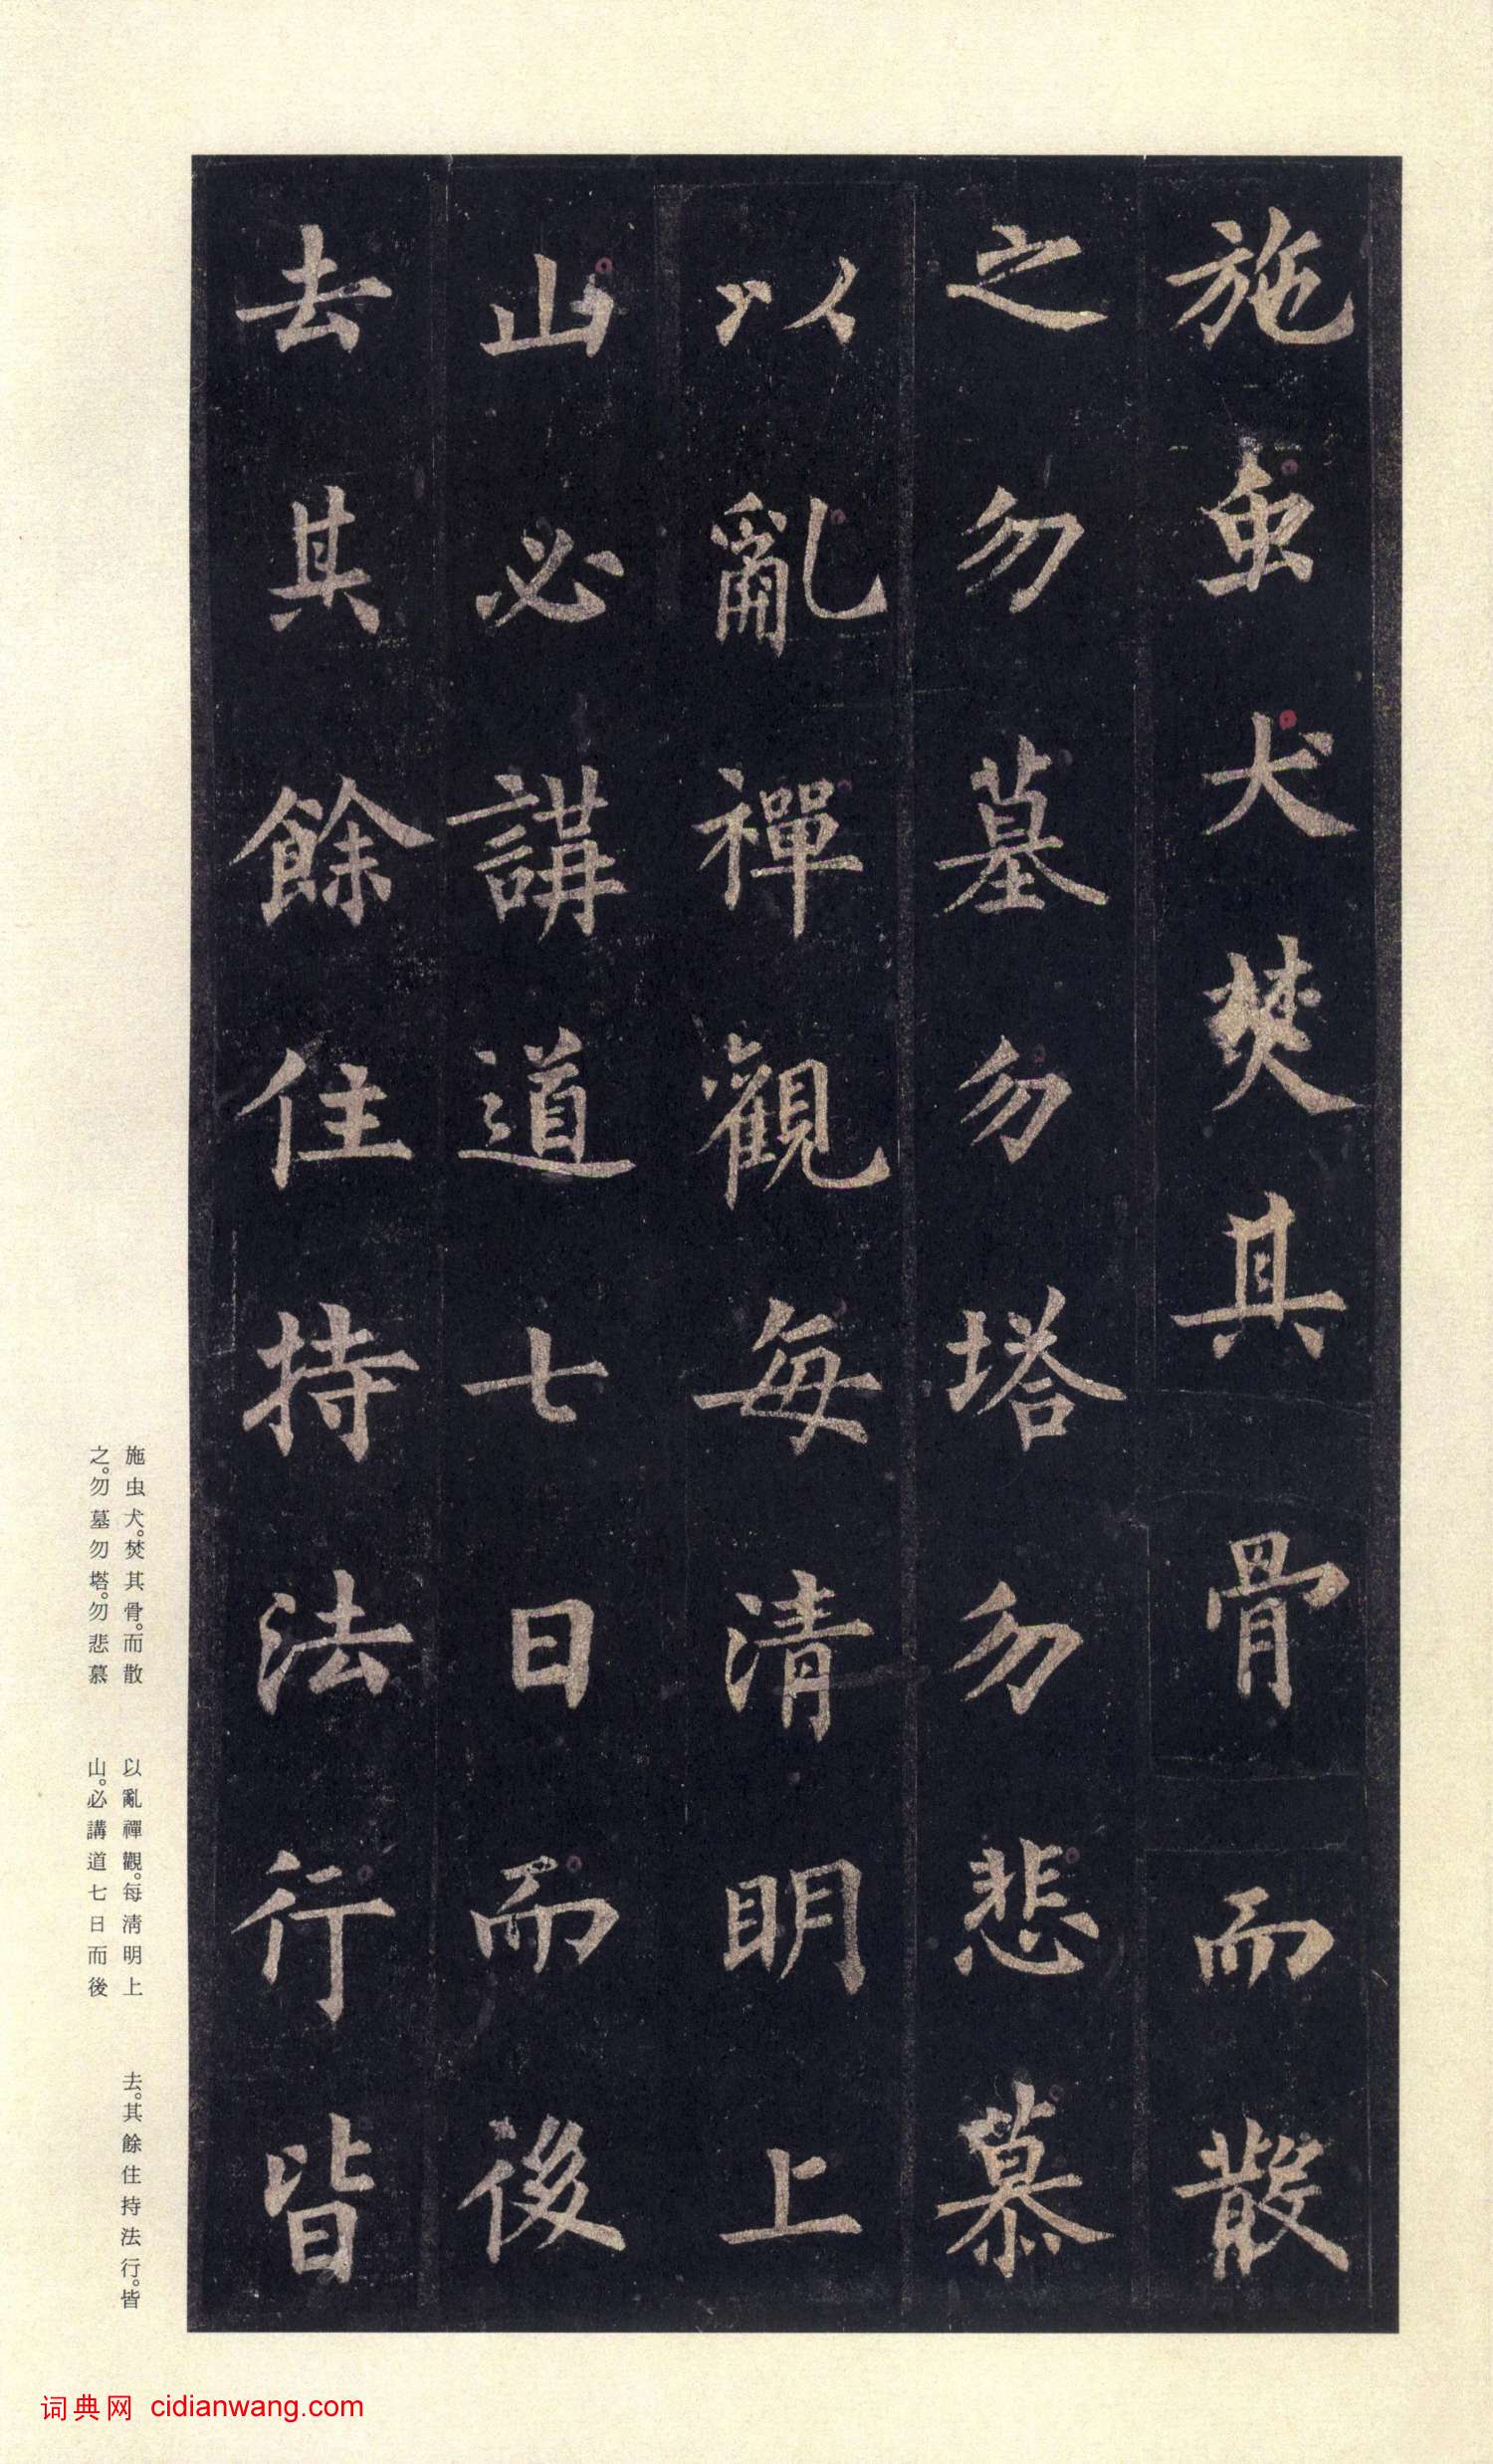 施虫犬焚其骨而散
之勿墓勿塔勿悲慕
以亂禪觀每清明上
山必講道七日而後
去其餘住持法行皆
施虫犬。焚其骨。而散
之。勿墓勿塔。勿悲慕
以亂禪觀。每清明上
山。必講道七日而後
去。其餘住持法行。皆
词典网 cidianwang.com